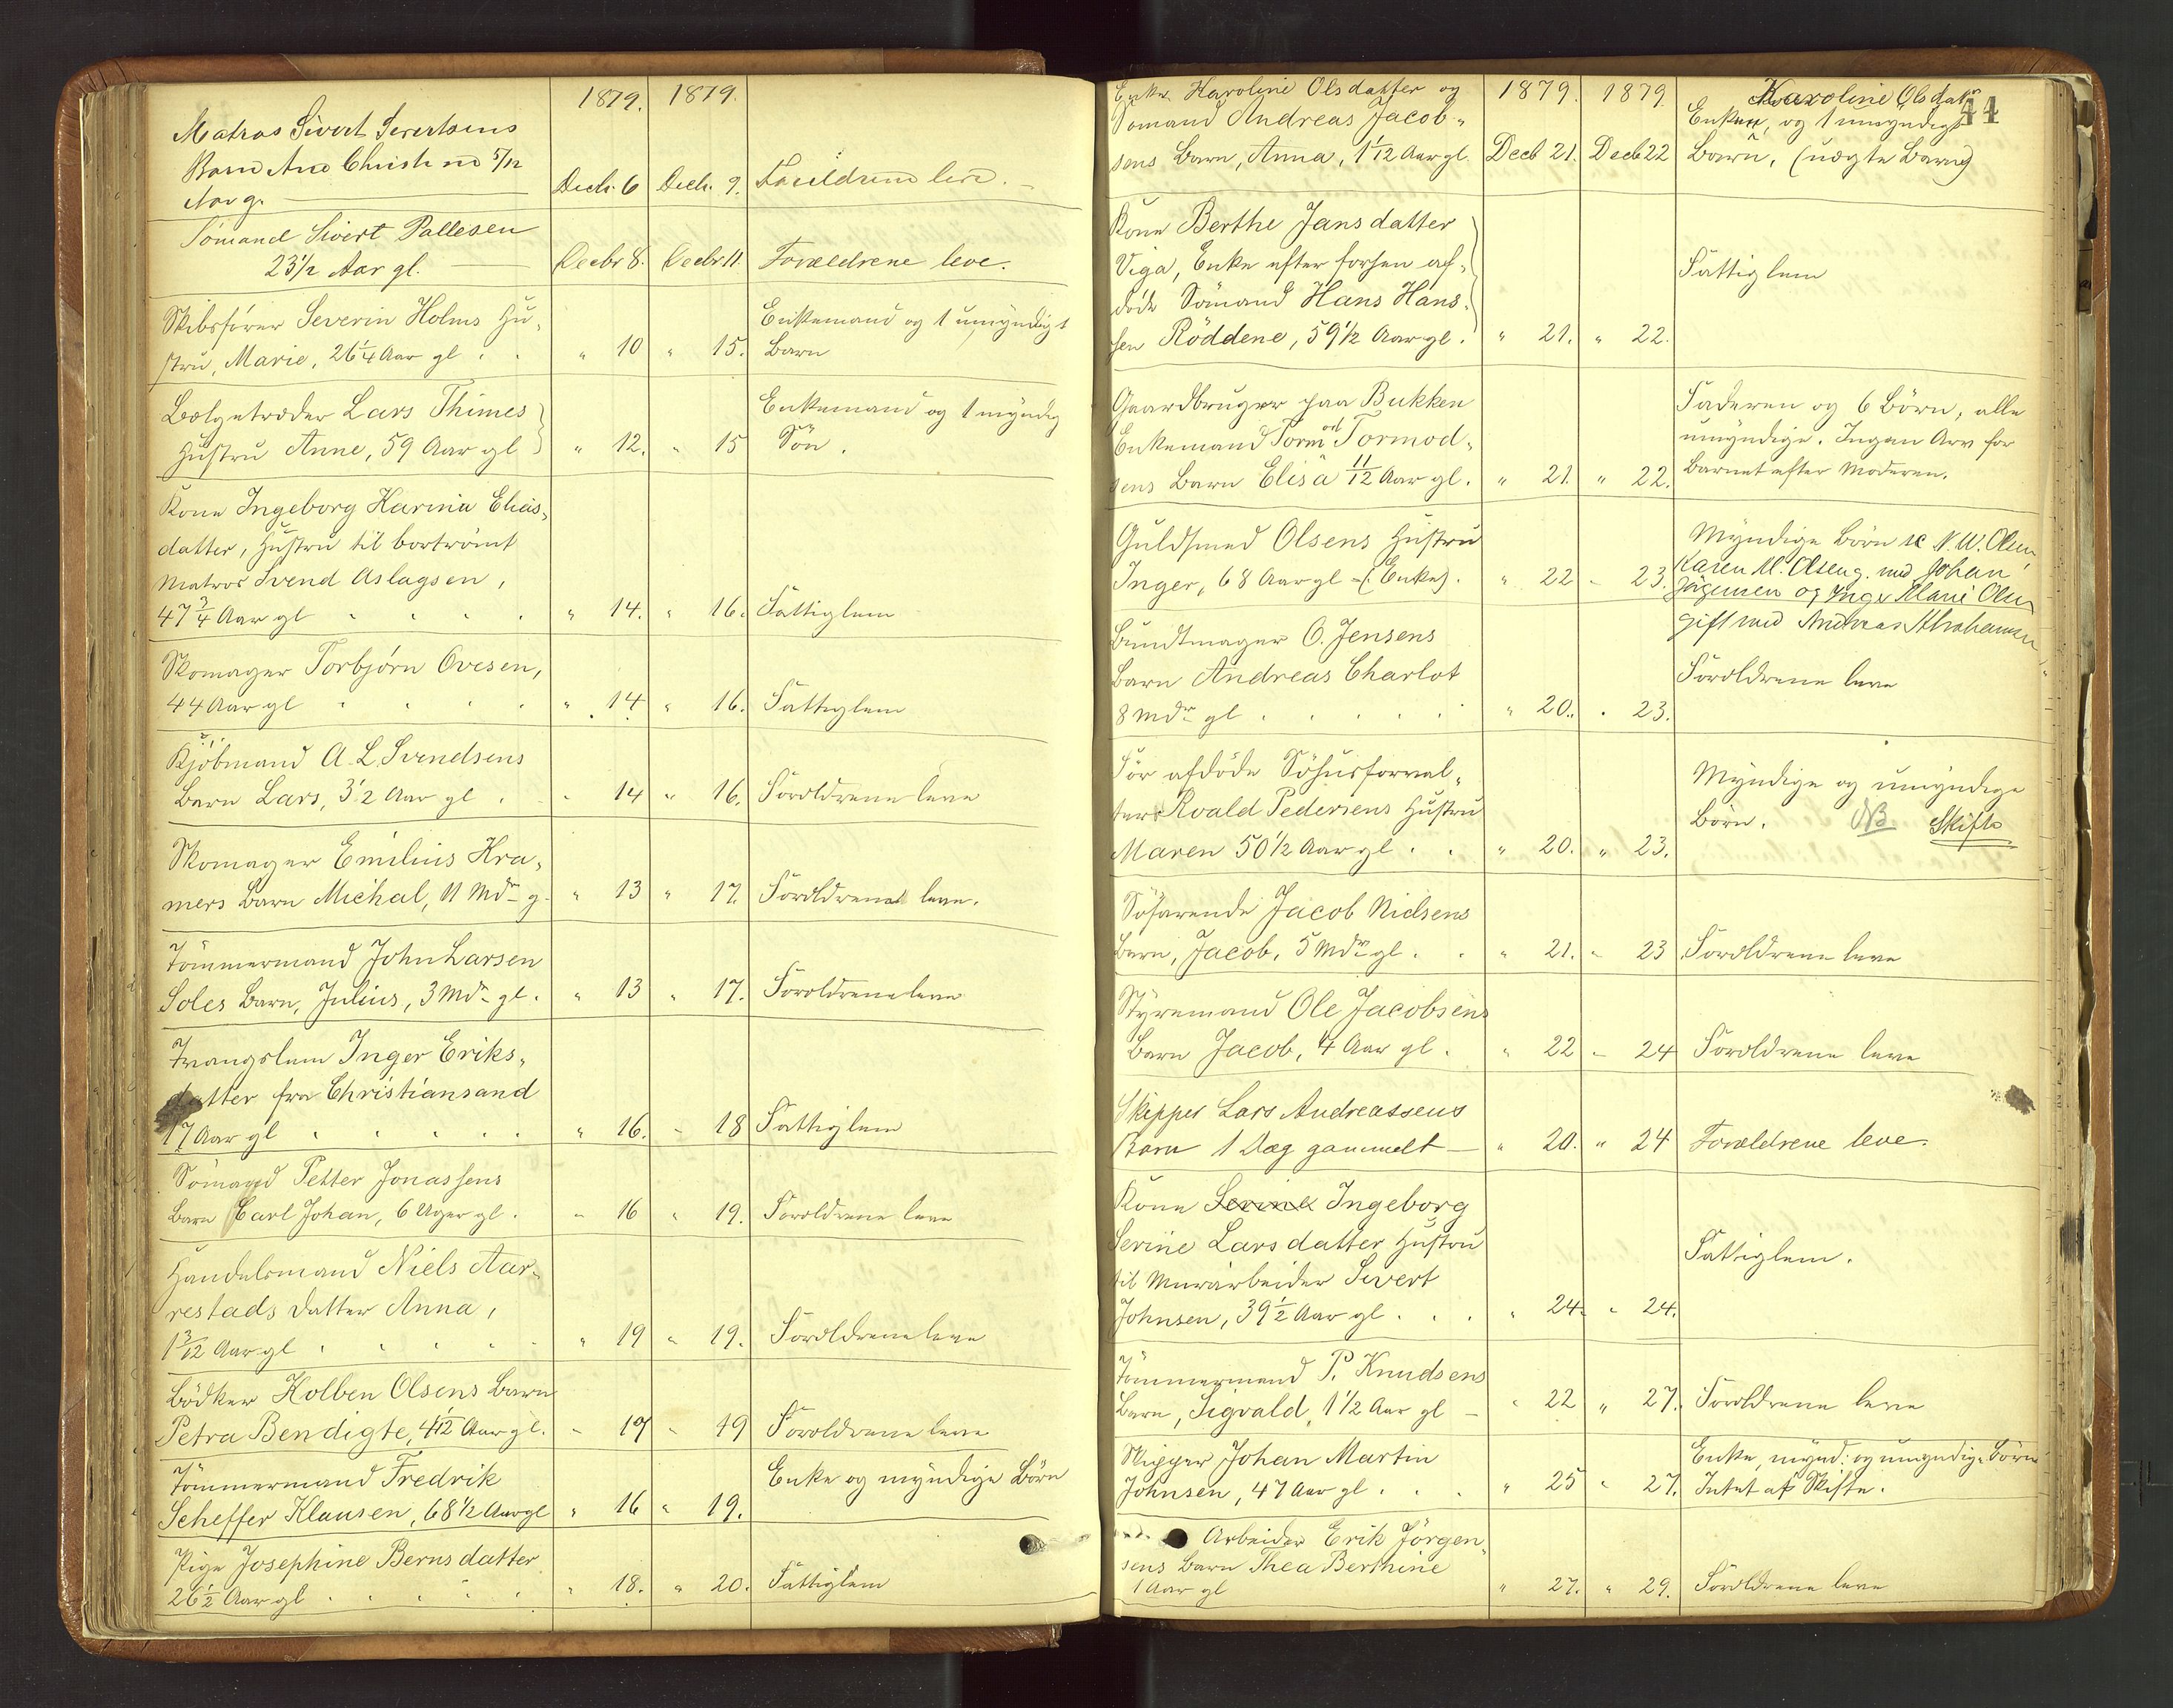 1879. 1879.
Matros Sivert Sivertsens
Barn Ane Christine 5/12
Aar g. Decb. 6 Decb. 9. Forældrene leve.
Sømand Sivert Pallesen
23 1/2 Aar gl. Decbr 8. Decbr 11. Forældrene leve.
Skibsfører Severin Holms Hu-
stru, Marie, 26 1/4 Aar gl. " 10 " 15. Enkemand og 1 umyndigt
Barn
Bælgetræder Lars Thimes
Hustru Anne, 59 Aar gl " 12. " 15 Enkemand og 1 myndig
Søn.
Kone Ingeborg Karina Elias-
datter, Hustru til bortrømt
Matros Svend Aslagsen,
47 3/4 Aar gl " 14. " 16. Fattiglem
Skomager Torbjørn Ovesen,
44 Aar gl " 14 " 16. Fattiglem
Kjøbmand A. L. Svendsens
Barn Lars, 3 1/2 Aar gl. " 14 " 16. Forældrene leve
Skomager Emilius Kra-
mers Barn Michal, 11 Mdr g. " 13 " 17. Forældrene leve.
Tømmermand John Larsen
Soles Barn, Julius, 3 Mdr gl. " 13 " 17. Forældrene leve
Tvangslem Inger Eriks-
datter fra Christiansand
17 Aar gl " 16. " 18 Fattiglem
Sømand Petter Jonassens
Barn Carl Johan, 6 Uger gl. " 16 " 19. Forældrene leve
Handelsmand Niels Aar-
restads Datter Anna,
1 3/12 Aar gl " 19 " 19. Forældrene leve
Bødker Kolben Olsens Barn
Petra Bendigte, 4 1/12 Aar gl. " 17 " 19 Forældrene leve
Tømmermand Fredrik
Scheffer Klausen, 68 1/2 Aar gl " 16 " 19. Enke og myndige Børn
Pige Josephine Berns datter
26 1/2 Aar gl " 18. " 20. Fattiglem
44
1879. 1879
Enke Karoline Olsdatter og
Sømand Andreas Jacob-
sens Barn, Anna, 1 1/12 Aar gl. Decb 21. Decb 22 Karoline Olsdatr
Enken, og 1 umyndigt
Barn, (uægte Barn)
Kone Berthe Jansdatter
Viga, Enke efter forhen af-
døde Sømand Hans Hans-
sen Røddene, 59 1/2 Aar gl. " 21. " 22. Fattiglem
Gaardbruger paa Bukken
Enkemand Tormod Tormod-
sens Barn Elisa 11/12 Aar gl. " 21. " 22. Faderen og 6 Børn, alle
umyndige. Ingen Arv for
Barnet efter Moderen.
Guldsmed Olsens Hustru
Inger, 68 Aar gl - (Enke). " 22 " 23. Myndige Børn sc N. W. Olsen,
Karen M. Olsen g. med Johan
Jørgensen og Inger Marie Olsen
gift med Andreas Abrahamsen
Bundtmager O. Jensens
Barn Andreas Charlot
8 Mdr gl " 20. " 23. Forældrene leve
Før afdøde Søhusforval-
ters Roald Pedersens Hustru
Maren 50 1/2 Aar gl. " 20. " 23. Myndige og umyndige
Børn. NB Skifte
Søfarende Jacob Nielsens
Barn, Jacob, 5 Mdr gl. " 21. " 23 Forældrene leve
Styrmand Ole Jacobsens
Barn Jacob, 4 Aar gl. " 22 " 24 Forældrene leve
Skipper Lars Andreassens
Barn 1 Dag gammelt " 20. " 24 Forældrene leve.
Kone Serine Ingeborg
Serine Larsdatter Hustru
til Murarbeider Sivert
Johnsen, 39 1/2 Aar gl. " 24. " 24. Fattiglem.
Tømmermand P. Knudsens
Barn, Sigvald, 1 1/2 Aar gl " 22 " 27. Forældrene leve
Skipper Johan Martin
Johnsen, 47 Aar gl. " 25 " 27. Enke, mynd: og umyndige Børn
Intet at Skifte.
Arbeider Erik Jørgen-
sens Barn Thea Berthine
1 Aar gl " 27. " 29. Forældrene leve